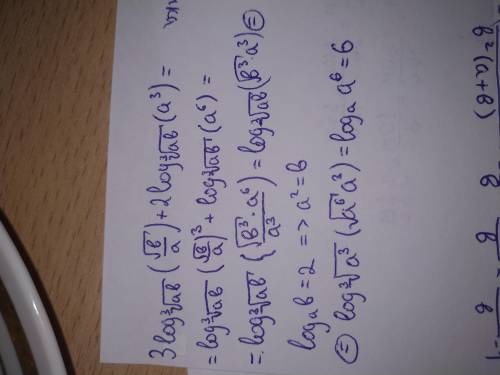 3 log ∛ab (√b/a) + 2 log ∛ab (a³) =
= log ∛ab (√b/a)³ + log ∛ab (a⁶) =
= log ∛ab (√b³ · a⁶/a³) = log ∛ab (√b³ · a³) ⊜
logₐ b = 2 => a² = b
⊜ log ∛a³ (√a⁶ a³) = logₐ a⁶ = 6
b² (a+b)